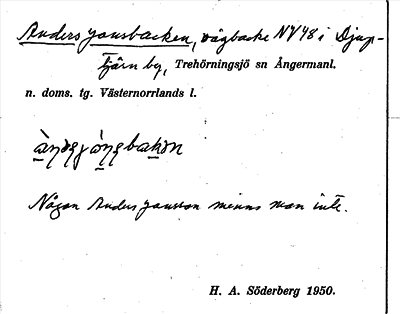 Anders jonsbacken, vägbacke NV48 i Djup-
tjärn by, Trehörningsjö sn Ångermanl.
n. doms. tg. Västernorrlands l.
Någon Anders Jonsson minns man inte.
H. A. Söderberg 1950.